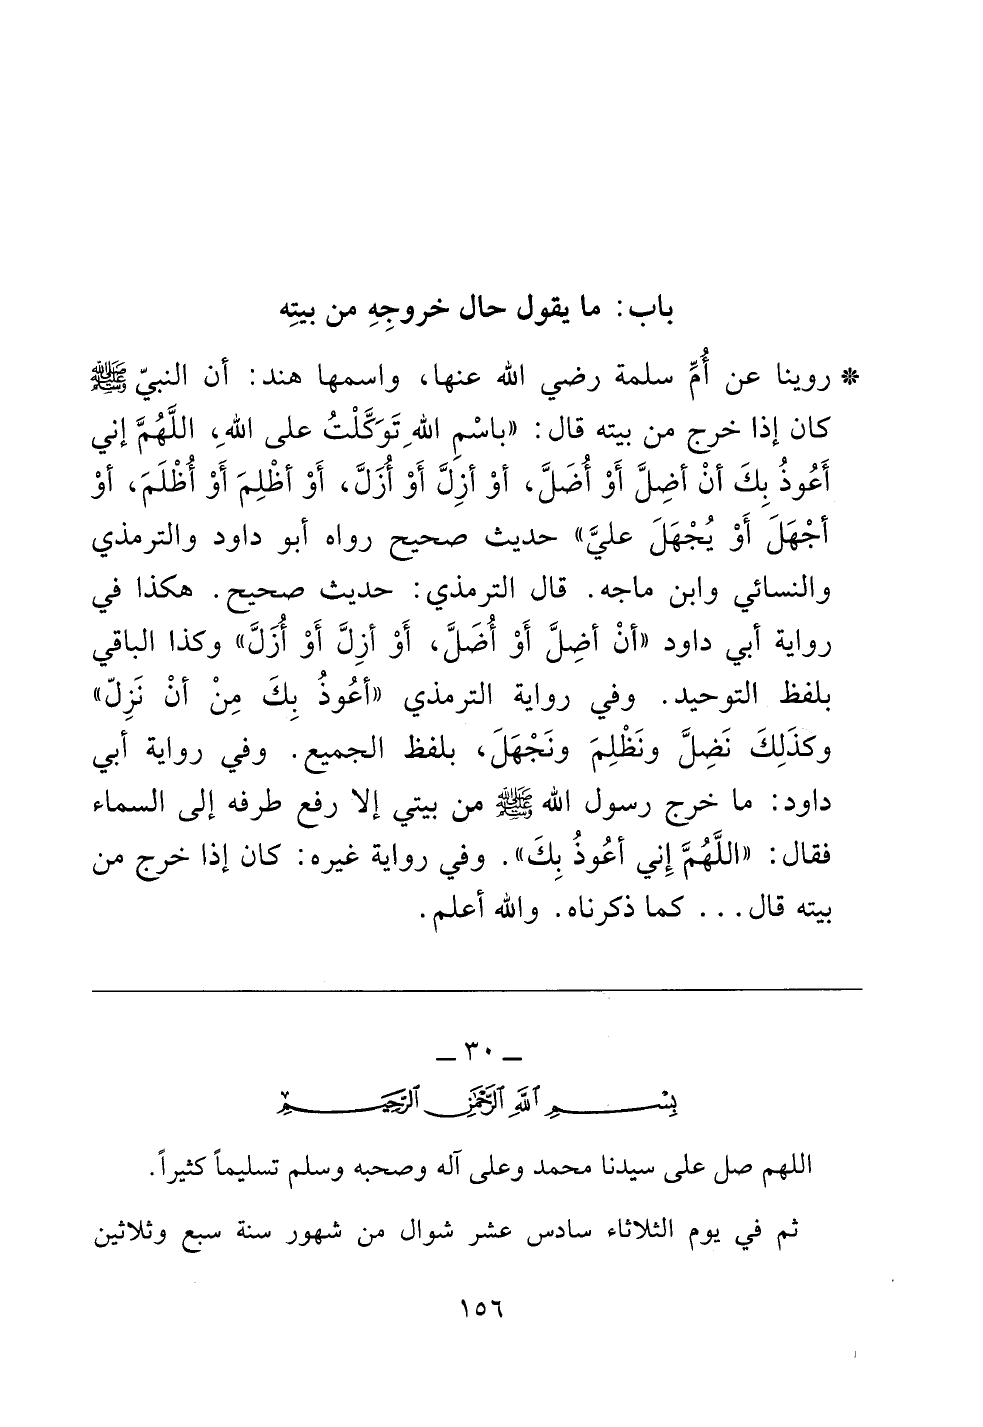 باب: ما يقول حال خروجِهِ من بيتِه
* روينا عن أُمِّ سلمة رضي الله عنها، واسمها هند: أن النبيّ ﷺ
كان إذا خرج من بيته قال: «باسْمِ اللهِ تَوَكَّلْتُ على اللهِ، اللَّهُمَّ إني
أَعُوذُ بِكَ أنْ أضِلَّ أَوْ أُضَلَّ، أوْ أزِلَّ أَوْ أُزَلَّ، أَوْ أظْلِمَ أَوْ أُظْلَمَ، أوْ
أجْهَلَ أَوْ يُجْهَلَ عليَّ» حديث صحيح رواه أبو داود والترمذي
والنسائي وابن ماجه. قال الترمذي: حديث صحيح. هكذا في
رواية أبي داود «أنْ أضِلَّ أَوْ أُضَلَّ، أَوْ أزِلَّ أَوْ أُزَلَّ» وكذا الباقي
بلفظ التوحيد. وفي رواية الترمذي «أعُوذُ بِكَ مِنْ أنْ نَزِلّ»
وكذَلِكَ نَضِلَّ ونَظْلِمَ ونَجْهَلَ، بلفظ الجميع. وفي رواية أبي
داود: ما خرج رسول الله ﷺ من بيتي إلا رفع طرفه إلى السماء
فقال: «اللَّهُمَّ إِني أعُوذُ بِكَ». وفي رواية غيره: كان إذا خرج من
بيته قال... كما ذكرناه. والله أعلم.
ـ ٣٠ ـ
بِسْمِ ٱللَّهِ ٱلرَّحْمَٰنِ ٱلرَّحِيمِ
اللهم صل على سيدنا محمد وعلى آله وصحبه وسلم تسليماً كثيراً.
ثم في يوم الثلاثاء سادس عشر شوال من شهور سنة سبع وثلاثين
١٥٦